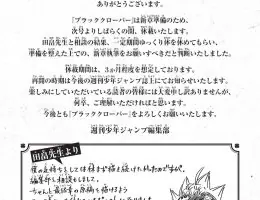 ありがとうございます。
『ブラッククローバー』は新章準備のため、
次号よりしばらくの間、休載いたします。
田畠先生と相談の結果、一定期間ゆっくり体を休めてもらい、
準備を整えた上での、新章執筆をお願いすべきだと判断いたしました。
休載期間は、3ヵ月程度を想定しております。
再開の時期は今後の週刊少年ジャンプ誌上にてお知らせいたします。
楽しみにしていただいている読者の皆様には大変申し訳ありませんが、
何卒、ご理解いただければと思います。
今後とも『ブラッククローバー』をよろしくお願いいたします。
週刊少年ジャンプ編集部
田畠先生より
僕の気持ちとしては休まず描き続けたかったのですが、
編集部と相談もしまして、